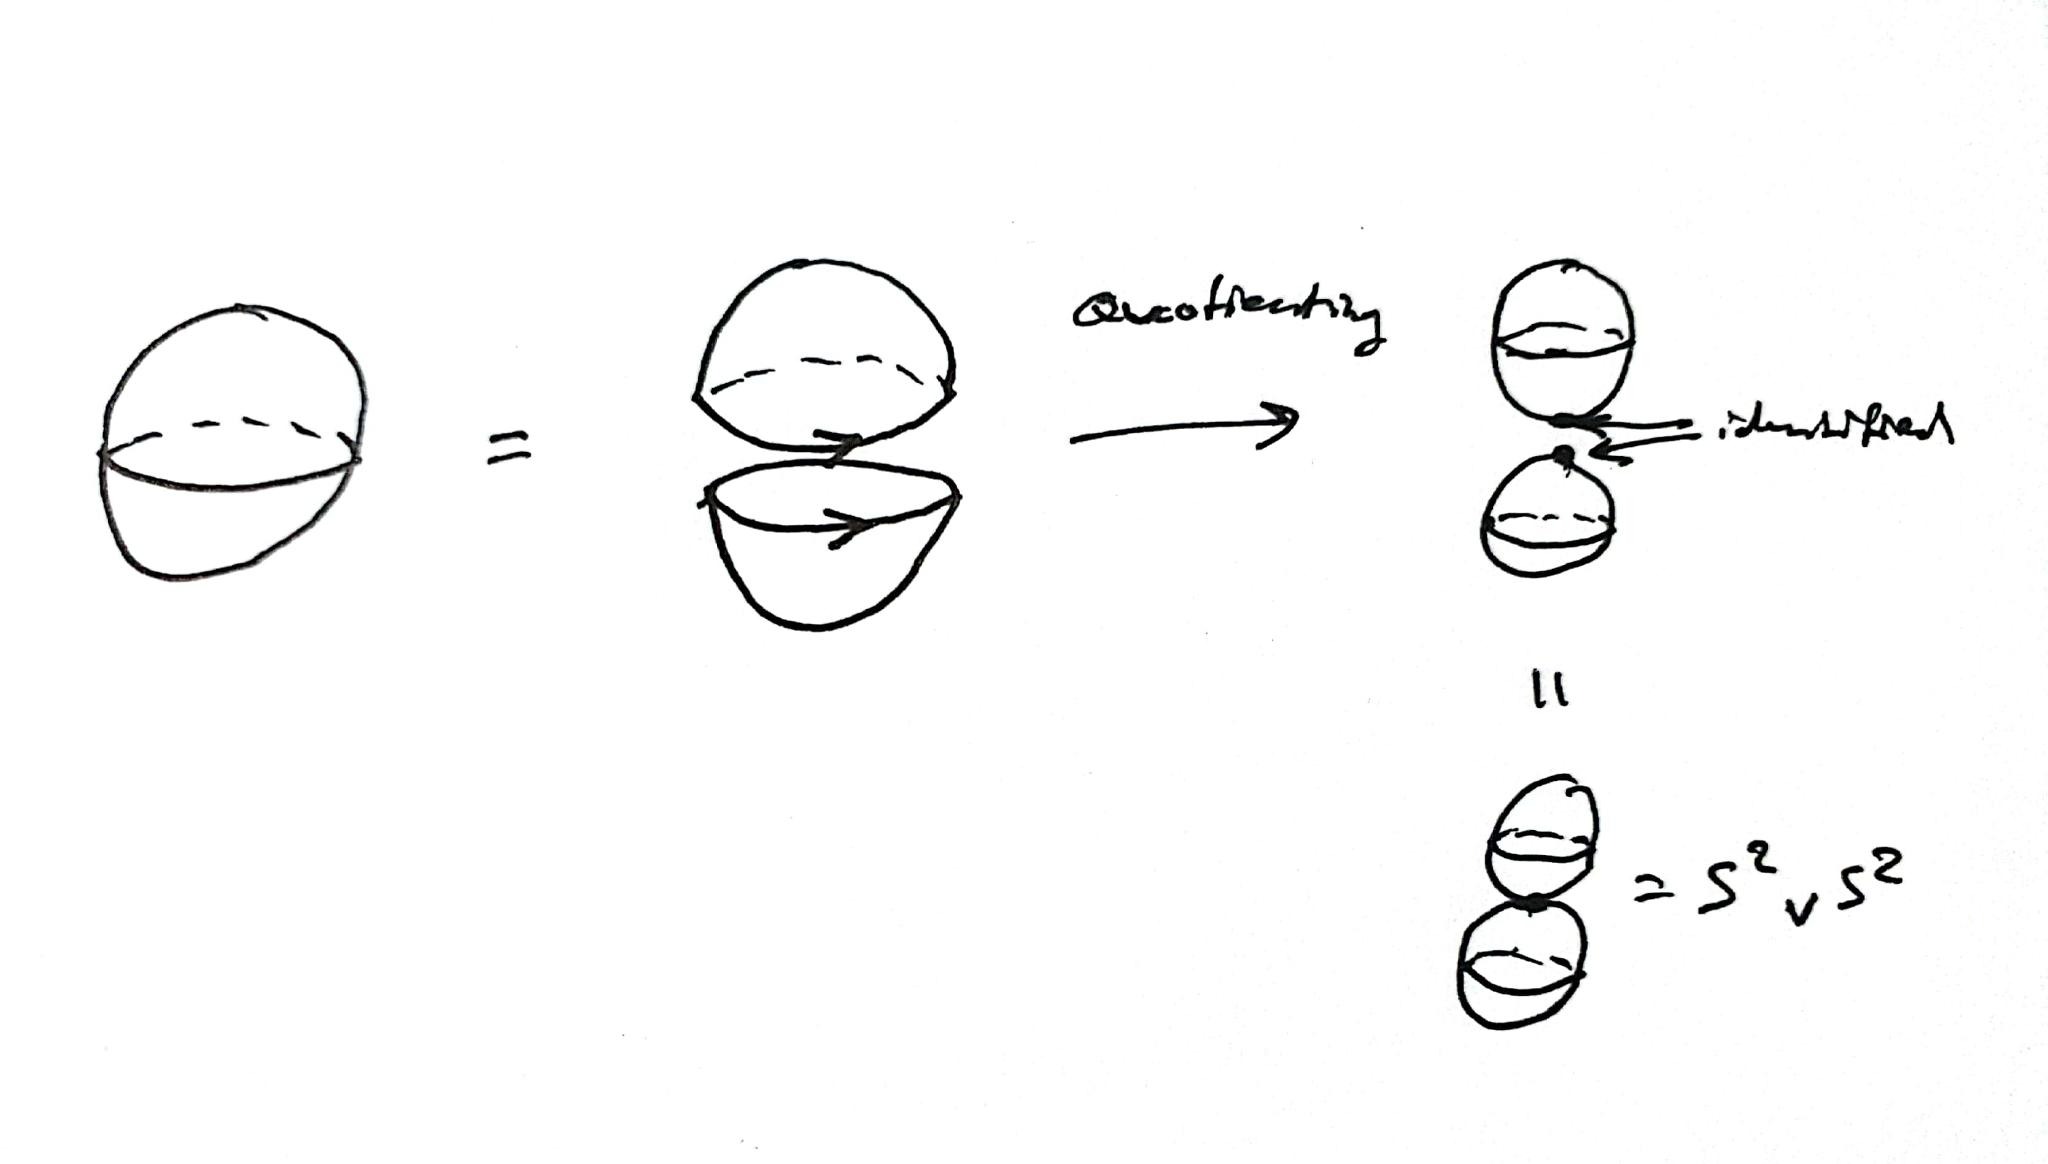 Quotienting
=
identified
=
= S² ∨ S²